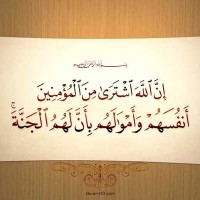 بسم الله الرحمن الرحيم
إِنَّ اللَّهَ اشْتَرَىٰ مِنَ الْمُؤْمِنِينَ
أَنفُسَهُمْ وَأَمْوَٰلَهُم بِأَنَّ لَهُمُ الْجَنَّةَ ۚ